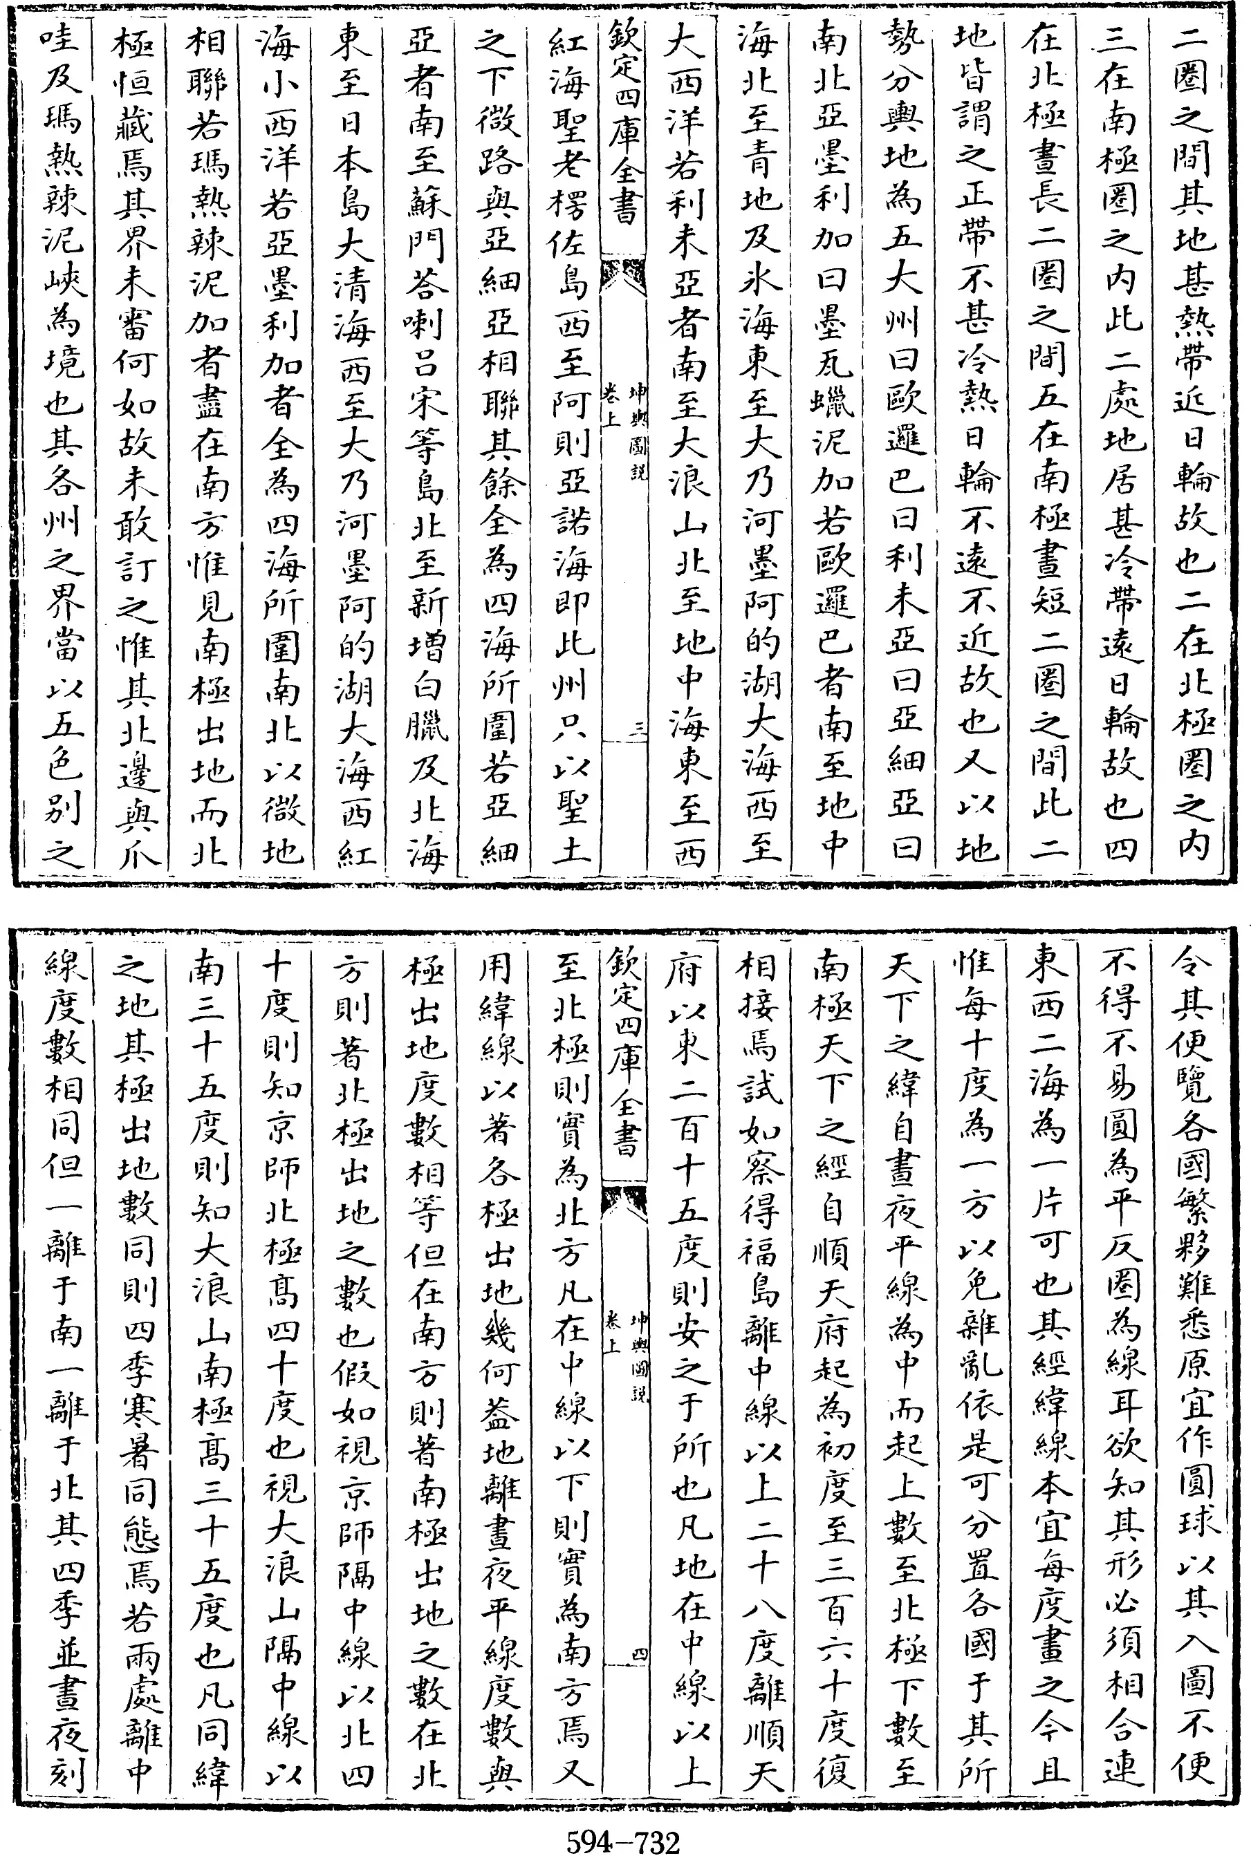 二圈之間其地甚熱帶近日輪故也二在北極圈之内
三在南極圈之内此二處地居甚冷帶遠日輪故也四
在北極晝長二圈之間五在南極晝短二圈之間此二
地皆謂之正帶不甚冷熱日輪不遠不近故也又以地
勢分輿地為五大州曰歐邏巴曰利未亞曰亞細亞曰
南北亞墨利加曰墨瓦蠟泥加若歐邏巴者南至地中
海北至青地及氷海東至大乃河墨阿的湖大海西至
大西洋若利未亞者南至大浪山北至地中海東至西
欽定四庫全書
坤輿圖説
卷上
三
紅海聖老楞佐島西至阿則亞諾海即此州只以聖土
之下微路與亞細亞相聯其餘全為四海所圍若亞細
亞者南至蘇門荅喇吕宋等島北至新增白臘及北海
東至日本島大清海西至大乃河墨阿的湖大海西紅
海小西洋若亞墨利加者全為四海所圍南北以微地
相聯若瑪熱辣泥加者盡在南方惟見南極出地而北
極恒藏焉其界未審何如故未敢訂之惟其北邊與爪
哇及瑪熱辣泥峽為境也其各州之界當以五色别之
令其便覽各國繁夥難悉原宜作圓球以其入圖不便
不得不易圓為平反圈為線耳欲知其形必須相合連
東西二海為一片可也其經緯線本宜每度畫之今且
惟每十度為一方以免雜亂依是可分置各國于其所
天下之緯自晝夜平線為中而起上數至北極下數至
南極天下之經自順天府起為初度至三百六十度復
相接焉試如察得福島離中線以上二十八度離順天
府以東二百十五度則安之于所也凡地在中線以上
欽定四庫全書
坤輿圖説
卷上
四
至北極則實為北方凡在中線以下則實為南方焉又
用緯線以著各極出地幾何葢地離晝夜平線度數與
極出地度數相等但在南方則著南極出地之數在北
方則著北極出地之數也假如視京師隔中線以北四
十度則知京師北極髙四十度也視大浪山隔中線以
南三十五度則知大浪山南極髙三十五度也凡同緯
之地其極出地數同則四季寒暑同態焉若兩處離中
線度數相同但一離于南一離于北其四季並晝夜刻
594-732